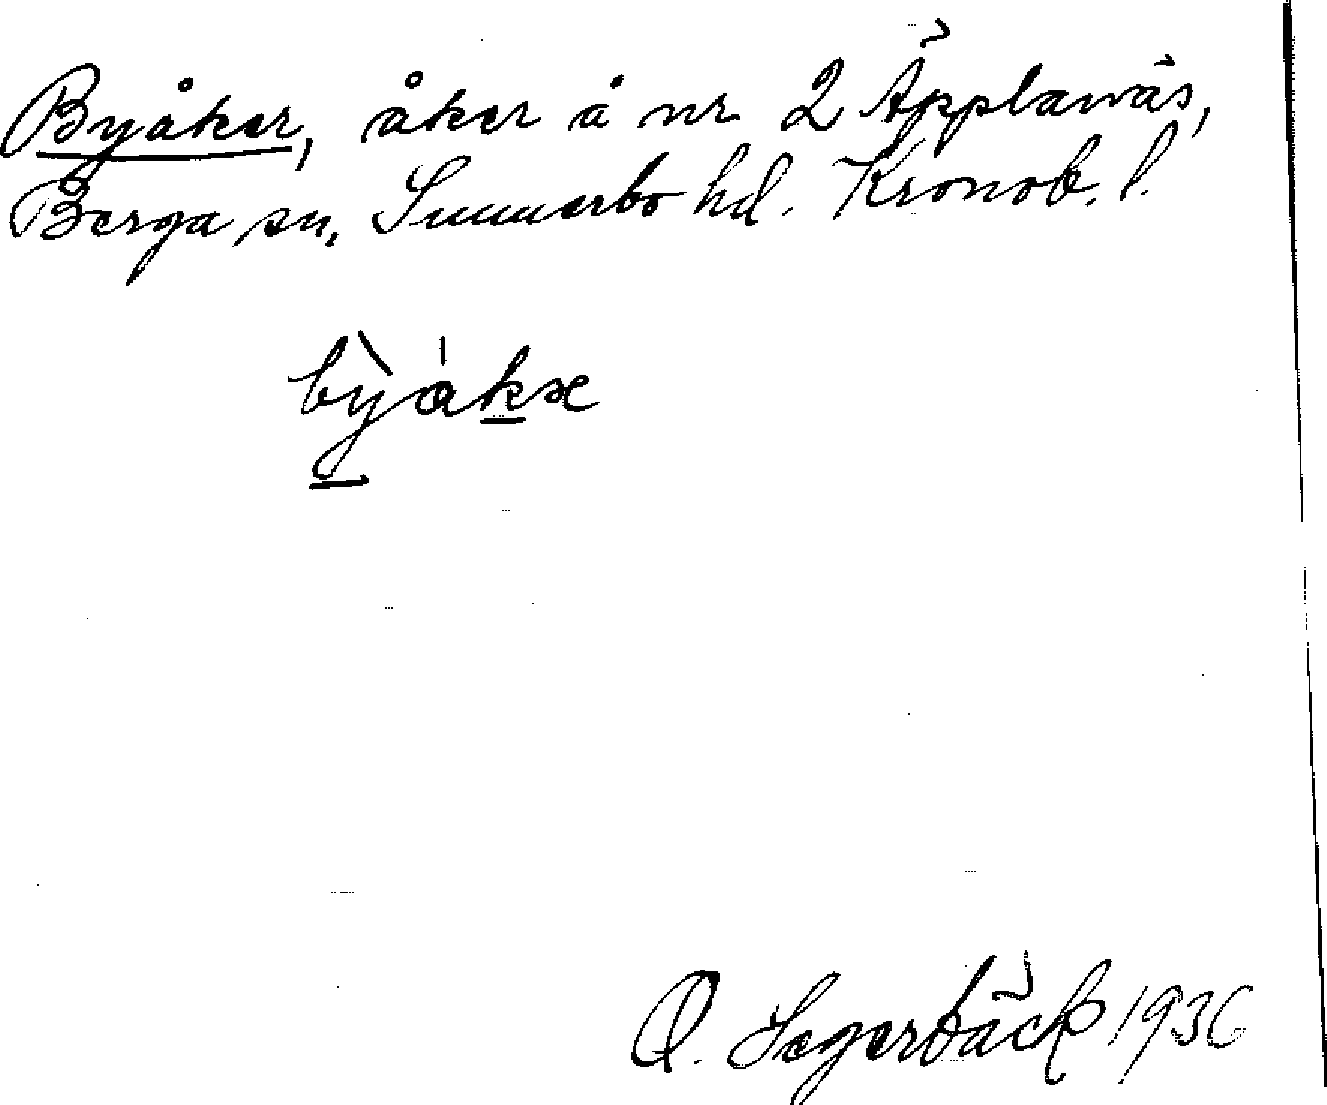 Byåker, åker å nr 2 Äpplanäs,
Berga sn, Sunnerbo hd. Kronob. l.
bỳåkæ
O. Segerbäck 1936